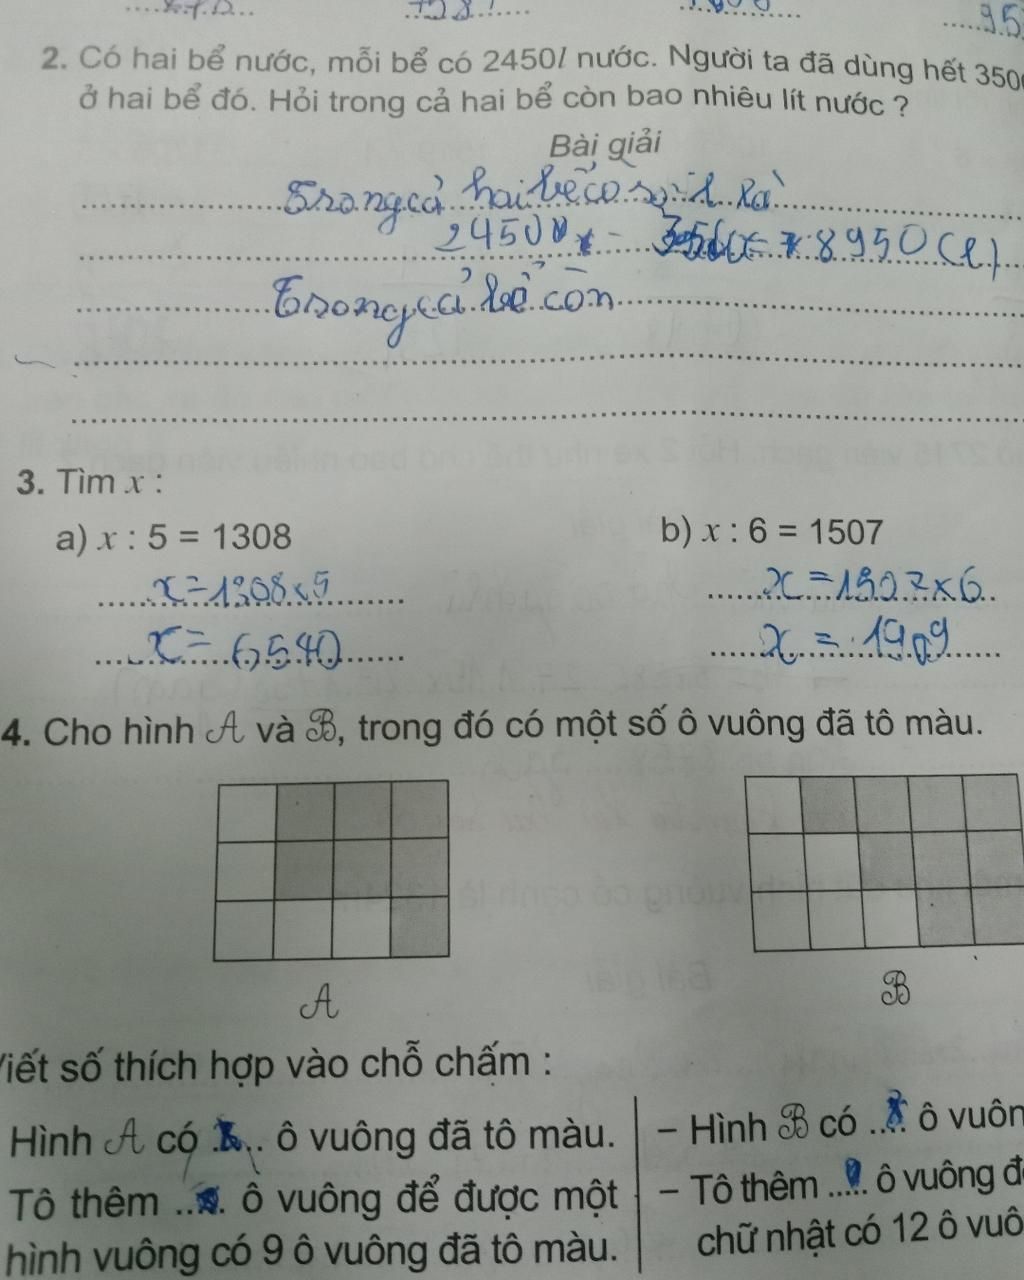 95
2. Có hai bể nước, mỗi bể có 2450l nước. Người ta đã dùng hết 350
ở hai bể đó. Hỏi trong cả hai bể còn bao nhiêu lít nước ?
Bài giải
Trong cả hai bể có số lít là
2450 8950 (l)
Trong cả bể còn
3. Tìm x :
a) x : 5 = 1308
b) x : 6 = 1507
x = 1308 x 5
x = 1507 x 6
x = 6540
x = 1909
4. Cho hình A và B, trong đó có một số ô vuông đã tô màu.
A
B
Viết số thích hợp vào chỗ chấm :
Hình A có ..... ô vuông đã tô màu.
– Hình B có ..... ô vuôn
Tô thêm ..... ô vuông để được một
– Tô thêm ..... ô vuông đ
hình vuông có 9 ô vuông đã tô màu.
chữ nhật có 12 ô vuô